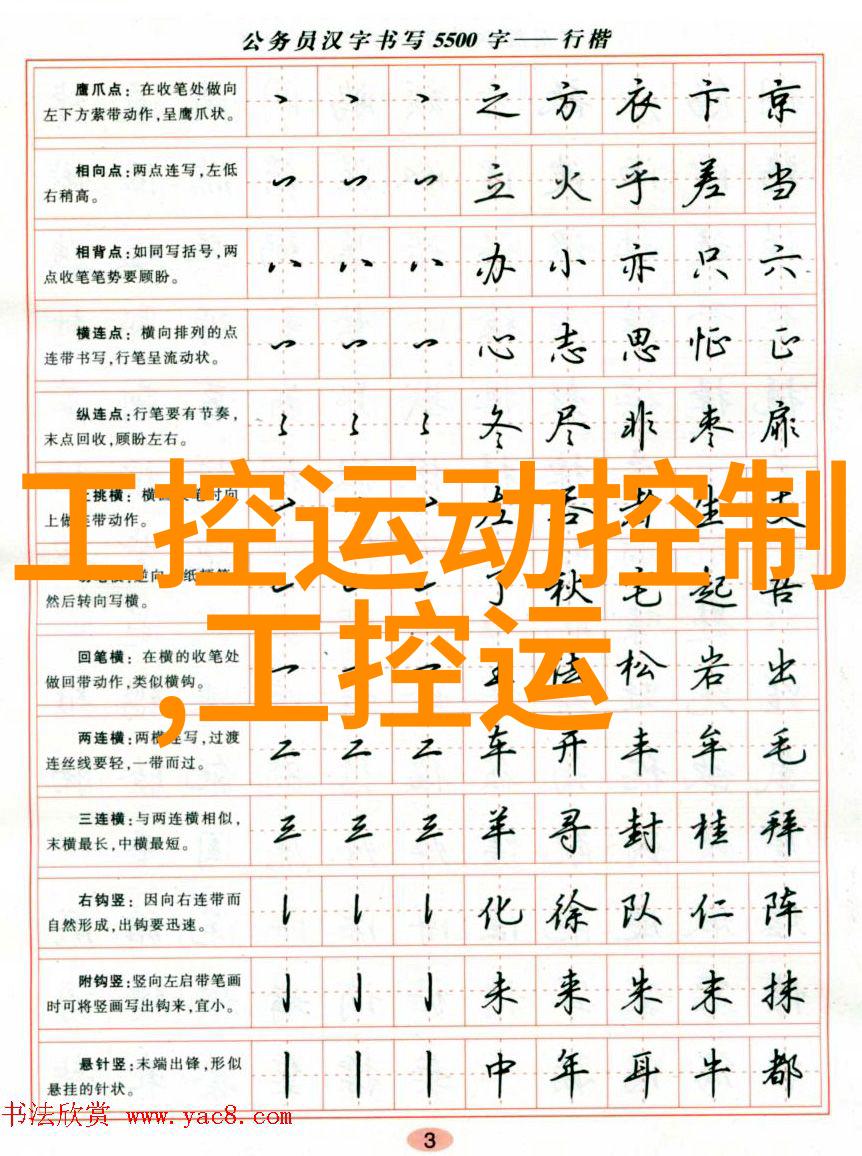 公务员汉字书写5500字——行楷
鹰爪点：在收笔处做向
左下方萦带动作,呈鹰爪状。
之 方 衣 卞 京
相向点:两点连写,左低
右稍高。
立 火 乎 差 当
相背点:如同写括号,两
点收笔笔势要顾盼。
办 小 亦 只 六
横连点：横向排列的点
连带书写,行笔呈流动状。
心 志 思 怔 正
纵连点:行笔要有节奏,
末点回收,顾盼左右。
冬 尽 非 枣 扉
挑横：横
上做 带动作。
左 吞 者 生 丈
工控运动控制
,工控运
然后转向写横。
了 秋 毛 起 吾
回笔横：在横的收笔处
做回带动作,类似横钩。
松 岩 出
两连横:两横连写,过渡
连丝线要轻,一带而过。
车 开 丰 牟 毛
三连横:与两连横相似,
末横最长,中横最短。
羊 寻 封 桂 拜
右钩竖：因向右连带而
自然形成,出钩要迅速。
化 徐 队 仁 阵
附钩竖:竖向左启带笔画
时可将竖画写出钩来,宜小。
未 来 朱 末 抹
悬针竖:末端出锋,形似
悬挂的针状。
中 年 耳 牛 都
书法欣赏 www.yac8.com
3